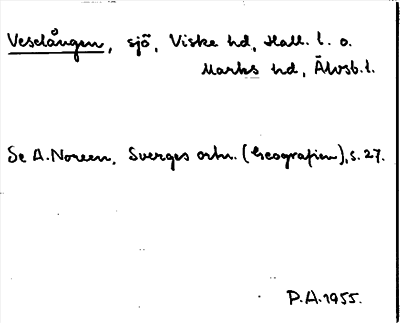 Veselången, sjö, Viske hd, Hall. l. o.
Marks hd, Älvsb. l.
Se A. Noreen, Sverges ortn. (Geografien), s. 27.
P.A. 1955.